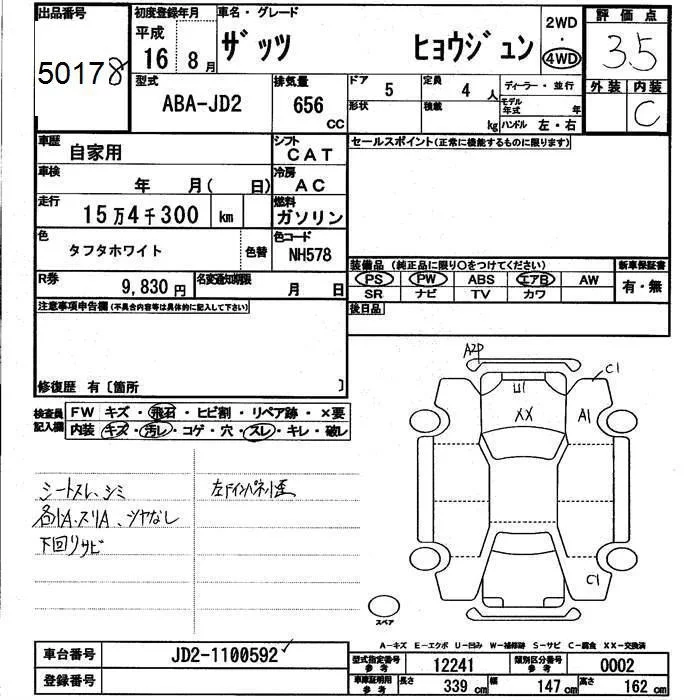 出品番号 初度登録年月 車名・グレード 2WD 評価点
平成
50178 16 8月 ザッツ ヒョウジュン 4WD 3.5
型式 排気量 ドア 5 定員 4人 ディーラー・並行 外装 内装
ABA-JD2 656 CC 形状 積載 kg モデル年式 年 C
ハンドル 左・右
車歴 自家用 シフト CAT セールスポイント(正常に機能するものに限ります)
車検 年 月( 日) 冷房 AC
走行 15万4千300 km 燃料 ガソリン
色 タフタホワイト 色替 色コード NH578
装備品(純正品に限り〇をつけてください) 新車保証書
R券 9,830円 名変通知期限 月 日 PS PW ABS エアB AW 有・無
SR ナビ TV カワ
注意事項申告欄(不具合内容等は具体的に記入して下さい) 後日品
修復歴 有〔箇所 〕
A2P
C1
U1
XX
A1
C1
スペア
検査員記入欄 FW キズ・飛石・ヒビ割・リペア跡・×要
内装 キズ・汚レ・コゲ・穴・スレ・キレ・破レ
シートスレ、シミ
各小A、スリA、ツヤなし
下回りサビ
A-キズ E-エクボ U-凹み W-補修跡 S-サビ C-腐食 XX-交換済
車台番号 JD2-1100592
登録番号
型式指定番号 参考 12241 類別区分番号 参考 0002
車庫証明用 参考 長さ 339 cm 幅 147 cm 高さ 162 cm